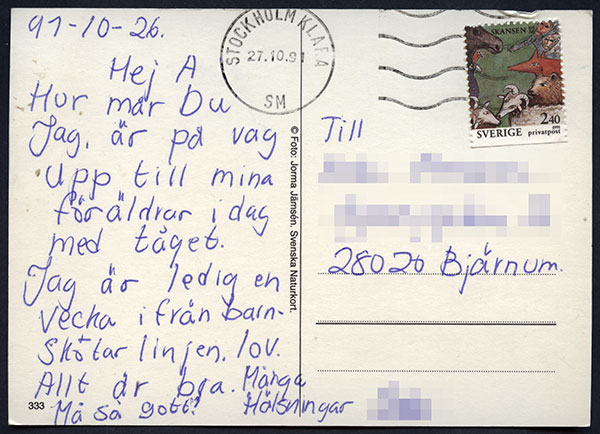 91-10-26.
Hej A
Hur mår Du
Jag, är på väg
Upp till mina
föräldrar i dag
med tåget.
Jag är ledig en
vecka ifrån barn-
Skötar linjen. lov.
Allt är bra. Många
Må så gott! Hälsningar
333
© Foto: Jorma Jämsén. Svenska Naturkort.
STOCKHOLM KLARA
27.10.91
SM
SKANSEN
2.40
SVERIGE privatpost
Till
28020 Bjärnum.